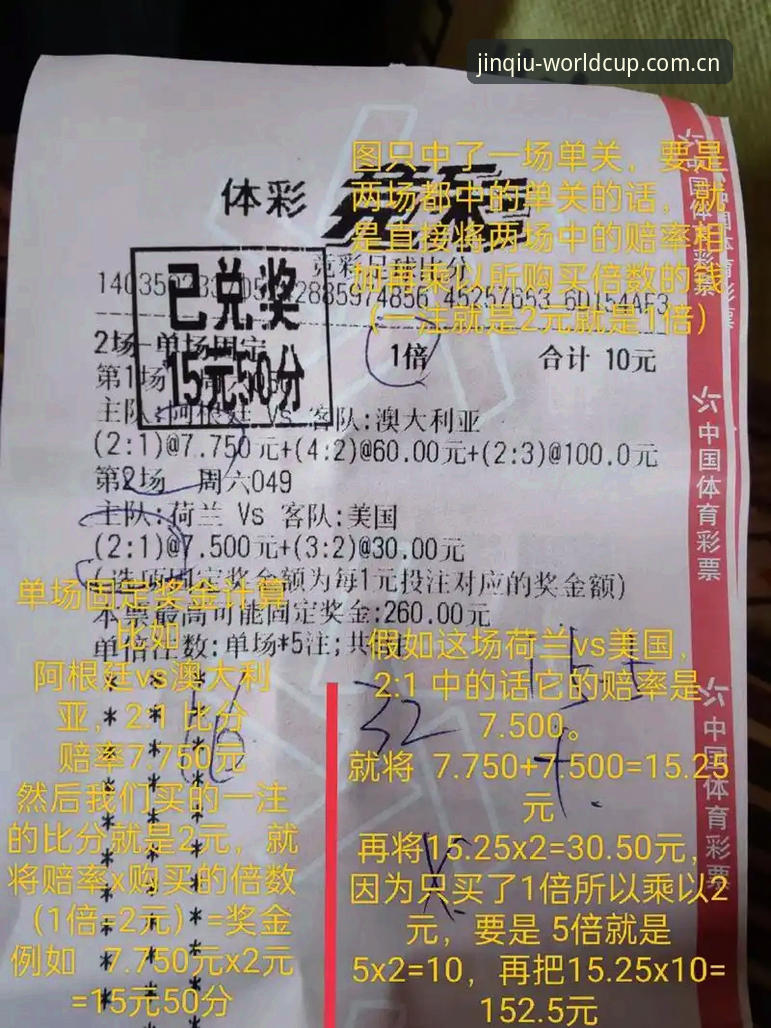 jinqiu-worldcup.com.cn
图只中了一场单关，要是
两场都中的单关的话，就
是直接将两场中的赔率相
加再乘以所购买倍数的钱
（一注就是2元就是1倍）
体彩
竞彩足球比分
已兑奖
15元50分
2场-单场固定
1倍
合计 10元
第1场 周六
主队:阿根廷 Vs 客队:澳大利亚
(2:1)@7.750元+(4:2)@60.00元+(2:3)@100.0元
第2场 周六049
主队:荷兰 Vs 客队:美国
(2:1)@7.500元+(3:2)@30.00元
(选项固定奖金额为每1元投注对应的奖金额)
本票最高可能固定奖金:260.00元
单倍注数:单场*5注;共
单场固定奖金计算
比如
阿根廷vs澳大利
亚，2:1 比分
赔率7.750元
然后我们买的一注
的比分就是2元，就
将赔率x购买的倍数
（1倍=2元）=奖金
例如 7.750元x2元
=15元50分
假如这场荷兰vs美国，
2:1 中的话它的赔率是
7.500。
就将 7.750+7.500=15.25
元
再将15.25x2=30.50元，
因为只买了1倍所以乘以2
元，要是 5倍就是
5x2=10，再把15.25x10=
152.5元
32
中国体育彩票
中国体育彩票
中国体育彩票